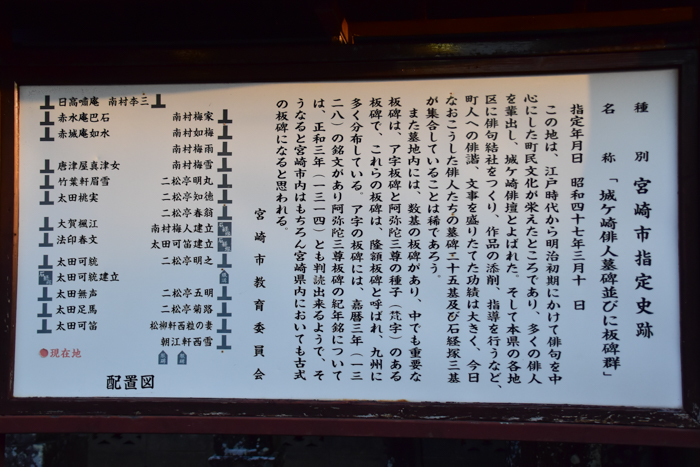 種別 宮崎市指定史跡
名称 「城ケ崎俳人墓碑並びに板碑群」
指定年月日 昭和四十七年三月十日
この地は、江戸時代から明治初期にかけて俳句を中
心にした町民文化が栄えたところであり、多くの俳人
を輩出し、城ケ崎俳壇とよばれた。そして本県の各地
区に俳句結社をつくり、作品の添削、指導を行うなど、
町人への俳諧、文事を盛りたてた功績は大きく、今日
なおこうした俳人たちの墓碑二十五基及び石経塚三基
が集合していることは稀であろう。
また墓地内には、数基の板碑があり、中でも重要な
板碑は、ア字板碑と阿弥陀三尊の種子(梵字)のある
板碑で、これらの板碑は、隆額板碑と呼ばれ、九州に
多く分布している。ア字の板碑には、嘉暦三年(一三
二八)の銘文があり阿弥陀三尊板碑の紀年銘について
は、正和三年(一三一四)とも判読出来るようで、そ
うなると宮崎市内はもちろん宮崎県内においても古式
の板碑になると思われる。
宮崎市教育委員会
南村梅家
南村如梅
南村梅雨
南村梅雪
二松亭明丸
二松亭知徳
二松亭春翁
南村梅人建立
太田可笛建立
二松亭明之
二松亭五明
二松亭菊路
松柳軒西粒の妻
朝江軒西雪
日高嘯庵 南村李三
赤水庵巴石
赤城庵如水
唐津屋真津女
竹葉軒眉雪
太田桃実
大賀楓江
法印春文
太田可鵆
太田可鵆建立
太田無声
太田足馬
太田可笛
●現在地
配置図